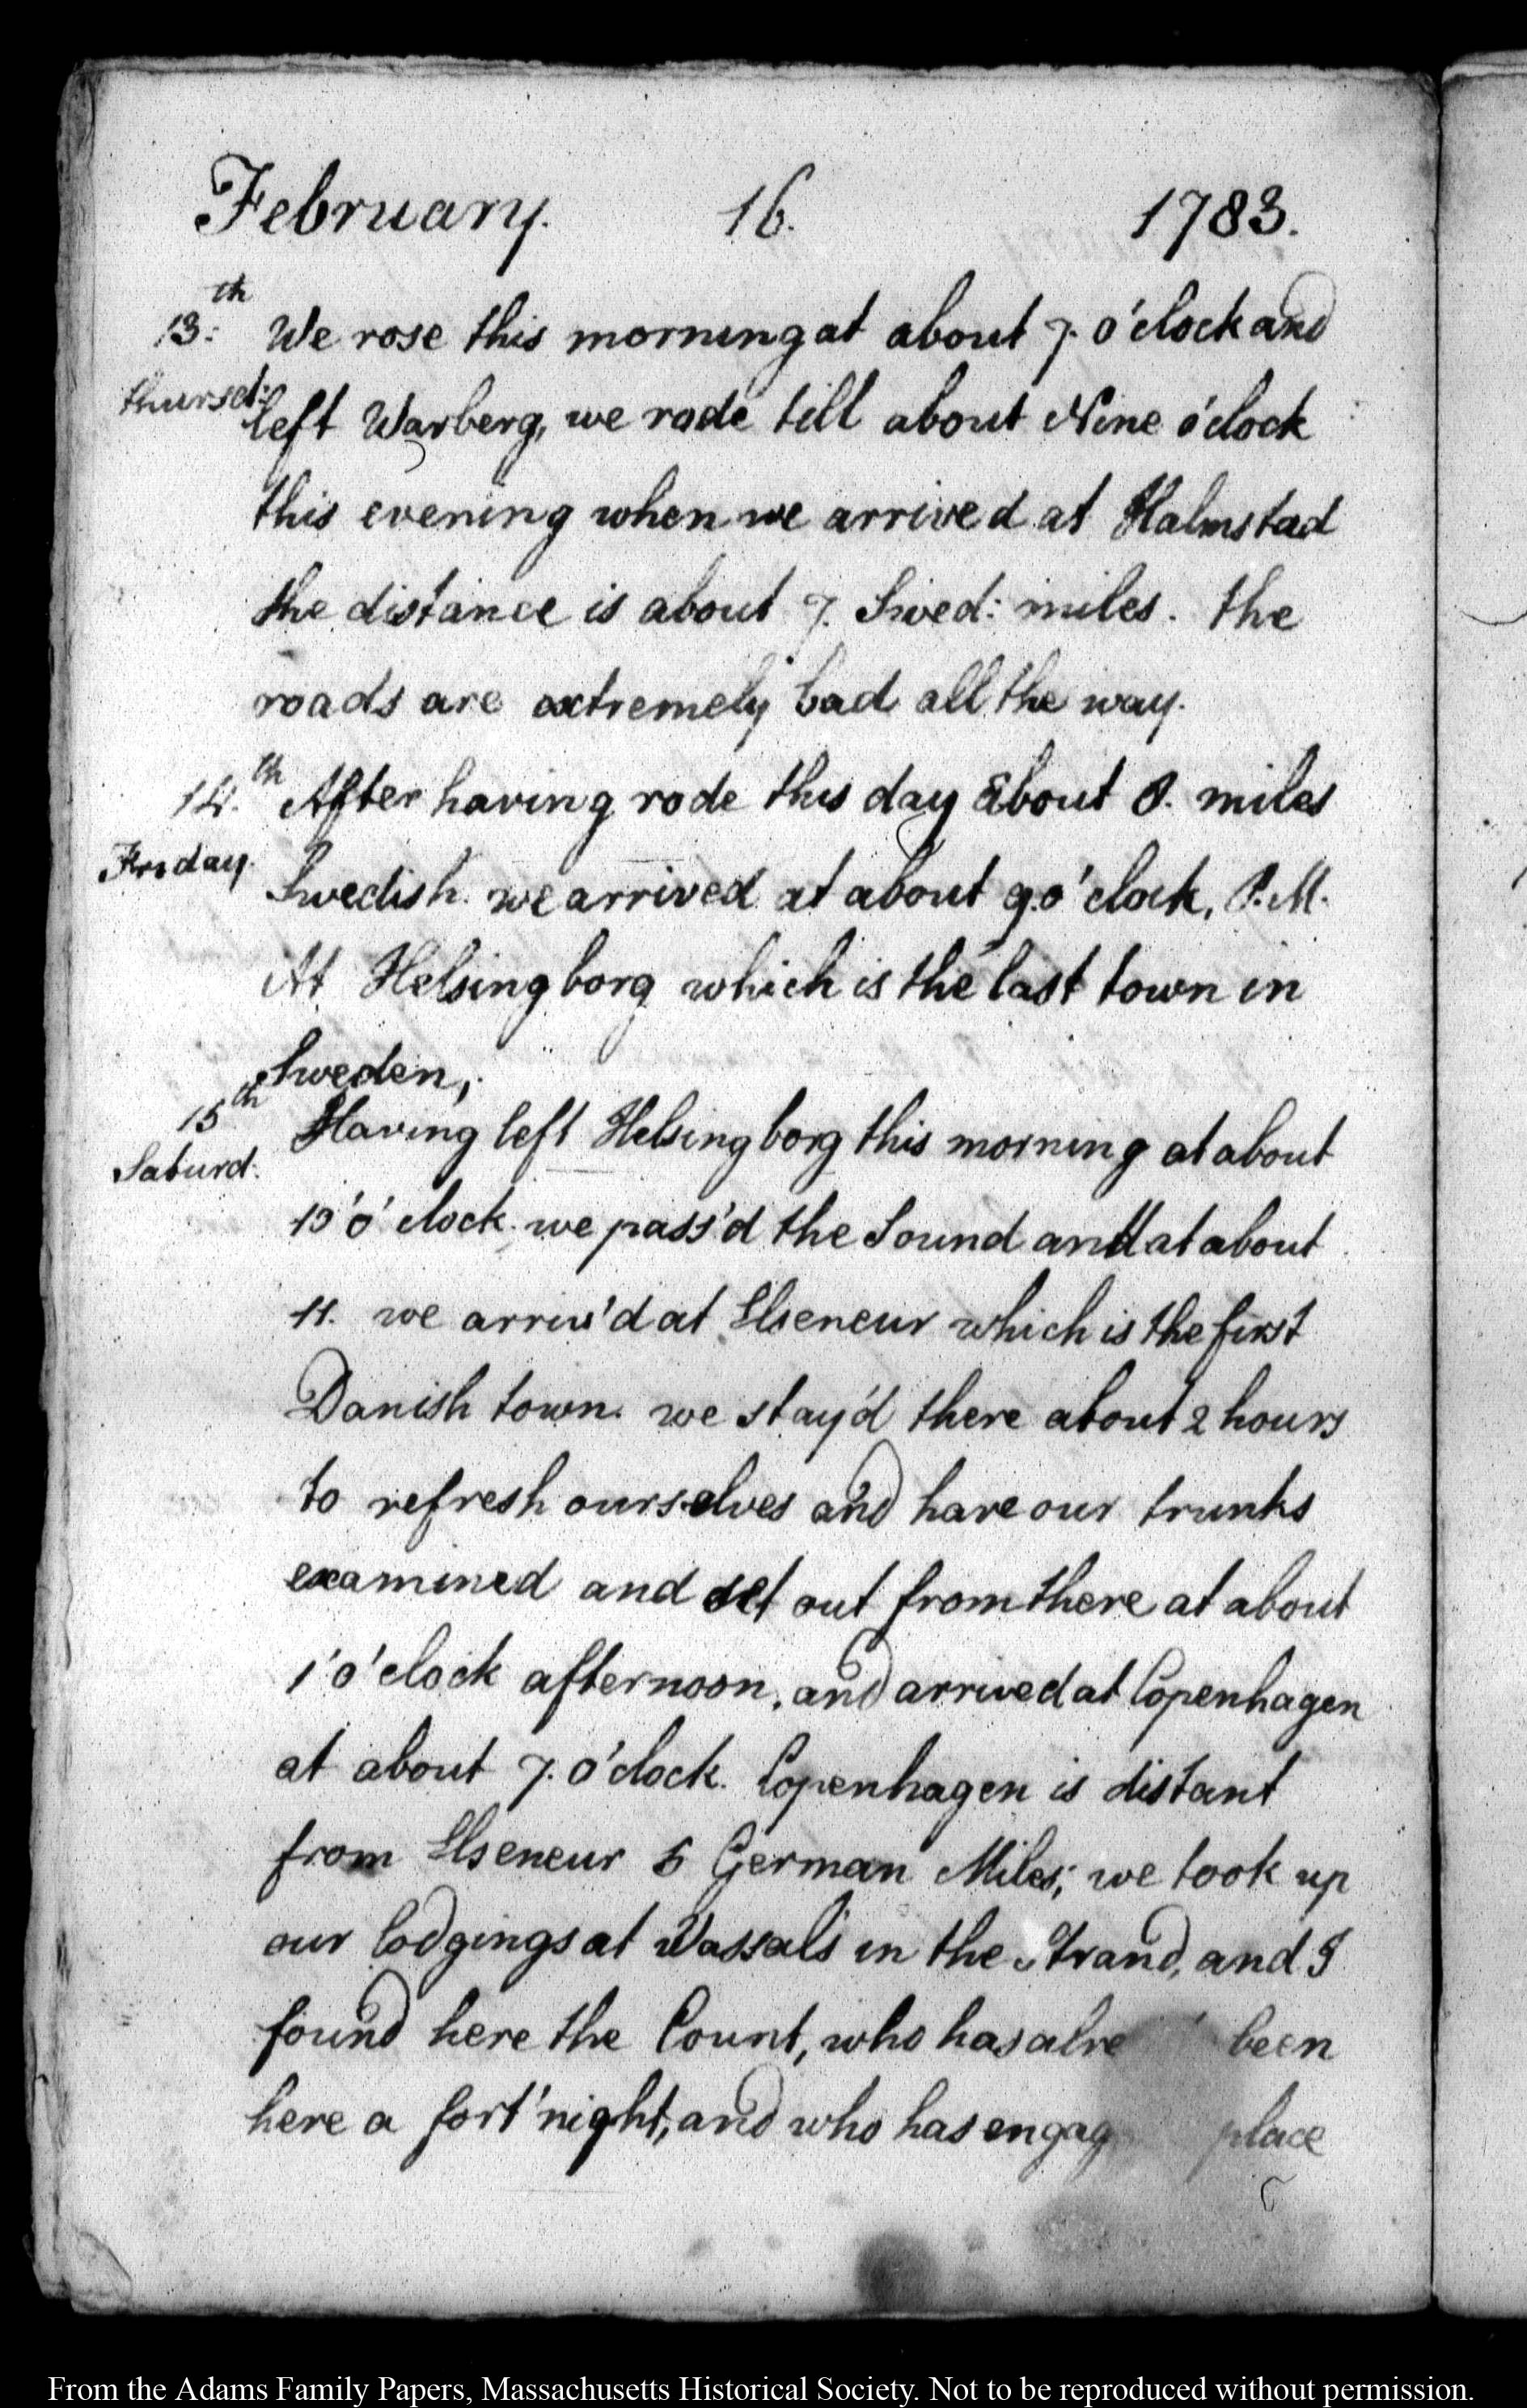 February. 16. 1783.
13:th We rose this morning at about 7. o'clock and
thursd: left Warberg, we rode till about Nine o'clock
this evening when we arrived at Halmstad
the distance is about 7. Swed: miles. the
roads are extremely bad all the way.
14.th After having rode this day about 8. miles
Friday. Swedish. we arrived at about 9.o'clock, P.M.
At Helsingborg which is the last town in
Sweden,
15th Having left Helsingborg this morning at about
Saturd: 10'o'clock. we pass'd the Sound and at about
11. we arriv'd at Elseneur which is the first
Danish town. we stay'd there about 2 hours
to refresh ourselves and have our trunks
examined and set out from there at about
1'o'clock afternoon, and arrived at Copenhagen
at about 7. o'clock. Copenhagen is distant
from Elseneur 5 German Miles; we took up
our lodgings at Vassals in the Strand, and I
found here the Count, who has alre been
here a fort'night, and who has engag place
From the Adams Family Papers, Massachusetts Historical Society. Not to be reproduced without permission.